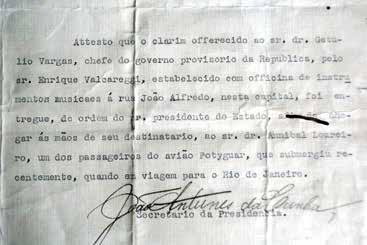 Attesto que o clarim offerecido ao sr. dr. Getu-
lio Vargas, chefe do governo provisorio da Republica, pelo
sr. Enrique Valcareggi, estabelecido com officina de instru
mentos musicaes á rua João Alfredo, nesta capital, foi en-
tregue, de ordem do sr. presidente do Estado, afim de che-
gar ás mãos de seu destinatario, ao sr. dr. Annibal Lourei-
ro, um dos passageiros do avião Potyguar, que submergiu re-
centemente, quando em viagem para o Rio de Janeiro.
João Antunes da Cunha,
Secretario da Presidencia.